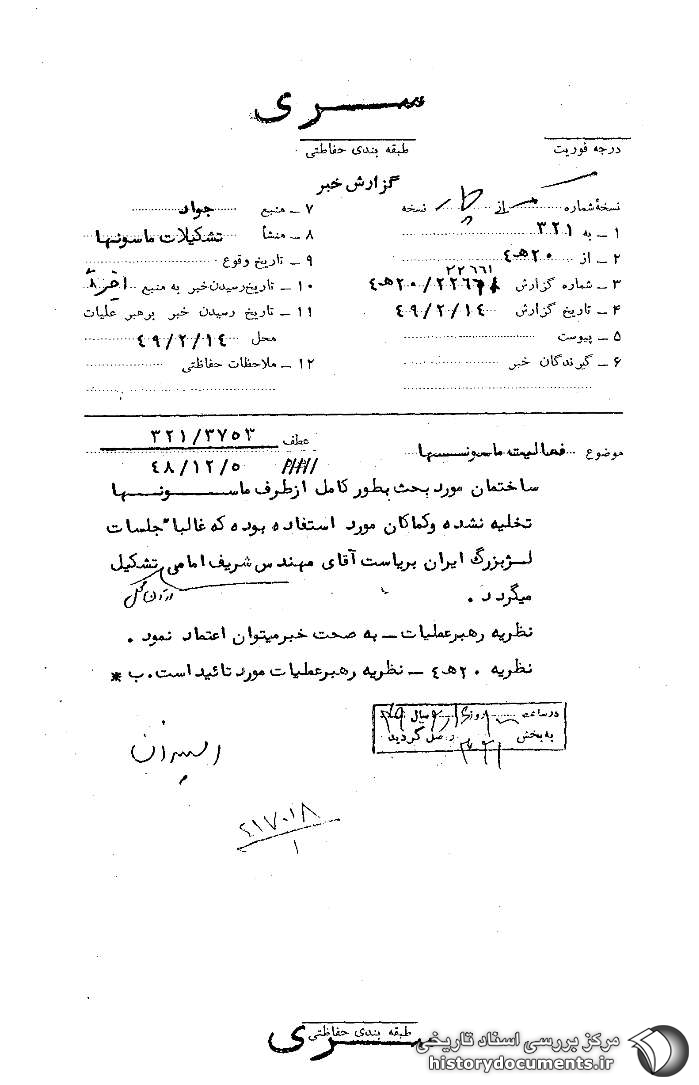 سری
درجه فوریت
طبقه بندی حفاظتی
گزارش خبر
نسخهٔ شماره از نسخه
۱ ـ به ۳۲۱
۲ ـ از ۲۰ﻫ۴
۳ ـ شماره گزارش ۲۰ﻫ۴/۲۲۶۶۱
۲۲۶۶۱
۴ ـ تاریخ گزارش ۴۹/۲/۱۴
۵ ـ پیوست
۶ ـ گیرندگان خبر
۷ ـ منبع جواد
۸ ـ منشأ تشکیلات ماسونها
۹ ـ تاریخ وقوع
۱۰ ـ تاریخ رسیدن خبر به منبع اخیراً
۱۱ ـ تاریخ رسیدن خبر برهبر عملیات
محل ۴۹/۲/۱۴
۱۲ ـ ملاحظات حفاظتی
موضوع فعالیت ماسونها
عطف ۳۲۱/۳۷۵۳
۴۸/۱۲/۵
ساختمان مورد بحث بطور کامل از طرف ماسونها
تخلیه نشده و کماکان مورد استفاده بوده که غالباً جلسات
لژ بزرگ ایران بریاست آقای مهندس شریف امامی تشکیل
میگردد .
در آن محل
نظریه رهبر عملیات ـ به صحت خبر میتوان اعتماد نمود .
نظریه ۲۰ﻫ۴ ـ نظریه رهبر عملیات مورد تائید است. ب *
در ساعت روز سال
به بخش واصل گردید
۲۱۷۰۱۸
۱
طبقه بندی حفاظتی
سری
مرکز بررسی اسناد تاریخی
historydocuments.ir